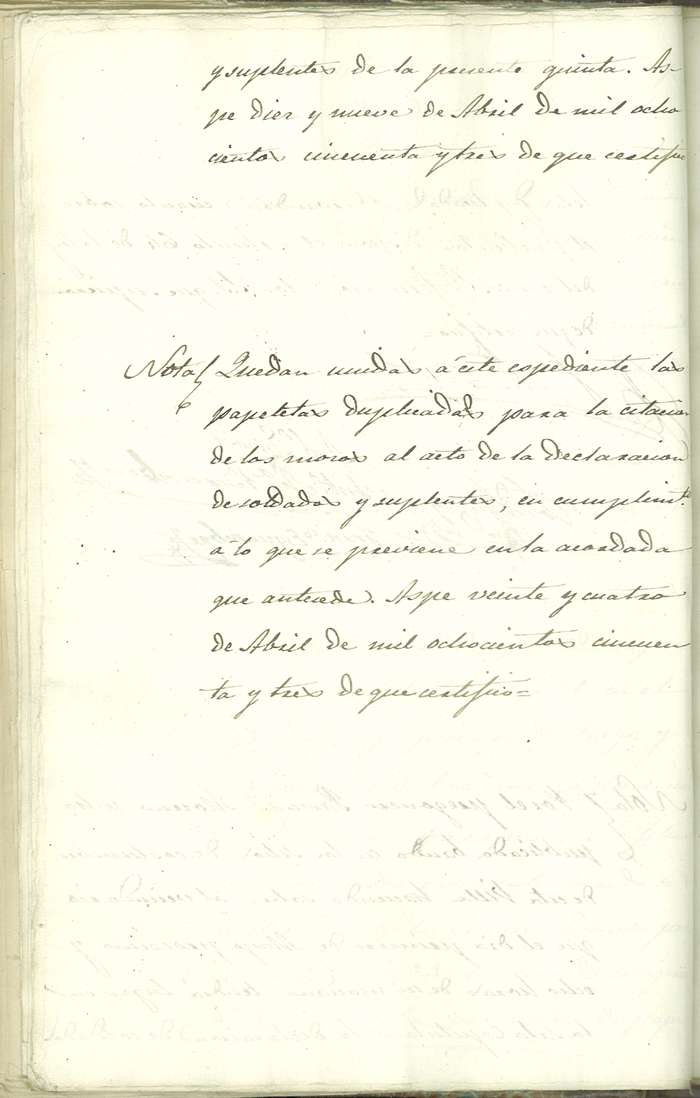 y suplentes de la presente quinta. As-
pe diez y nueve de Abril de mil ocho
cientos cincuenta y tres de que certifico
Nota Quedan unidas á este espediente las
papeletas duplicadas para la citacion
de los mosos al acto de la declaracion
de soldados y suplentes, en cumplimto.
á lo que se previene en la acordada
que antecede. Aspe veinte y cuatro
de Abril de mil ochocientos cincuen
ta y tres de que certifico=